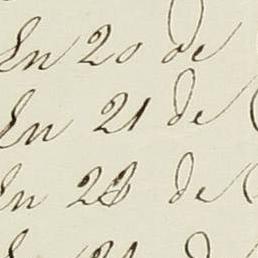 En 20 de
En 21 de
En 23 de